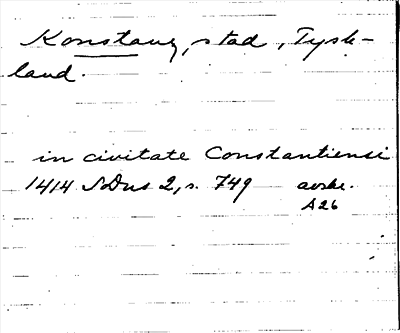 Konstanz, stad, Tysk-
land.
in civitate Constantiensi
1414 SDns 2, s. 749 avskr.
A26